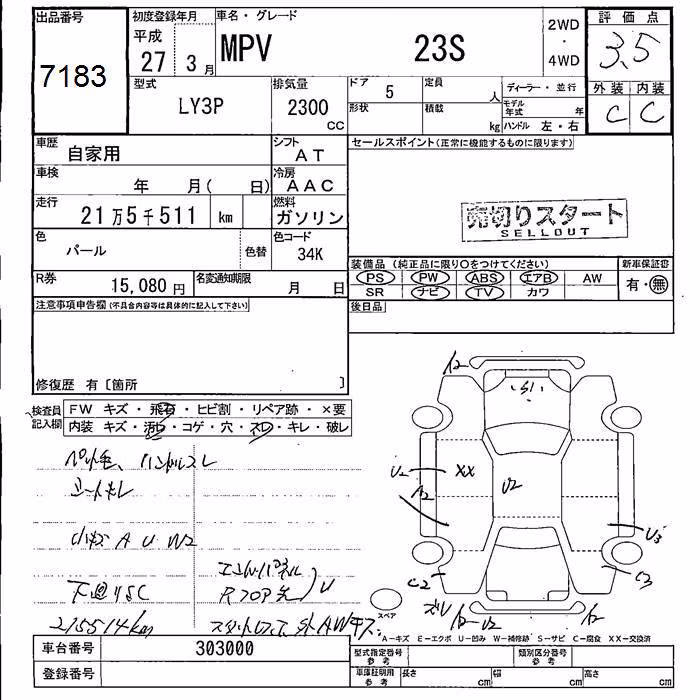 出品番号
7183
初度登録年月
平成
27 3月
車名・グレード
MPV 23S
2WD
・
4WD
評価点
3.5
外装 内装
C C
型式
LY3P
排気量
2300
CC
ドア 5
形状
定員
人
積載
kg
ディーラー・並行
モデル年式 年
ハンドル 左・右
車歴
自家用
シフト
AT
車検
年 月( 日)
冷房
AAC
走行
21万5千511 km
燃料
ガソリン
色
パール
色替
色コード
34K
R券
15,080円
名変通知期限
月 日
セールスポイント(正常に機能するものに限ります)
売切りスタート
SELLOUT
装備品(純正品に限り○をつけてください)
PS PW ABS エアB AW
SR ナビ TV カワ
新車保証書
有・無
後日品
注意事項申告欄(不具合内容等は具体的に記入して下さい)
修復歴 有〔箇所 〕
検査員
記入欄
FW キズ・飛石・ヒビ割・リペア跡・×要
内装 キズ・汚れ・コゲ・穴・スレ・キレ・破レ
ハンドルスレ
シートキレ
小キズ A U W2
下廻りSC
215514km
エンドパネル
R フロア先 U
A2
S1
U2
XX
A2
U2
U3
C2
C3
ズレ
A2-U2
A2
スペア
A−キズ E−エクボ U−凹み W−補修跡 S−サビ C−腐食 XX−交換済
車台番号
303000
登録番号
型式指定番号
参考
類別区分番号
参考
車庫証明用
参考
長さ cm
幅 cm
高さ cm